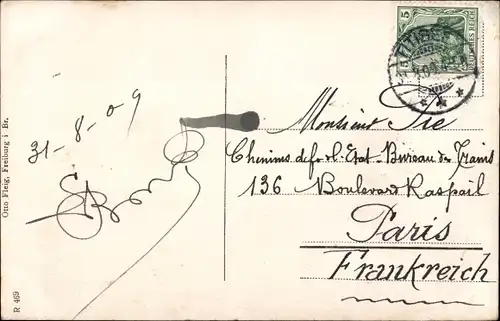 5
DEUTSCHES REICH
TITISEE
31-8-09
Monsieur Pie
Chemins de fer de l'Etat - Bureau des Trains
136 Boulevard Raspail
Paris
Frankreich
Otto Fleig, Freiburg i Br.
R 469